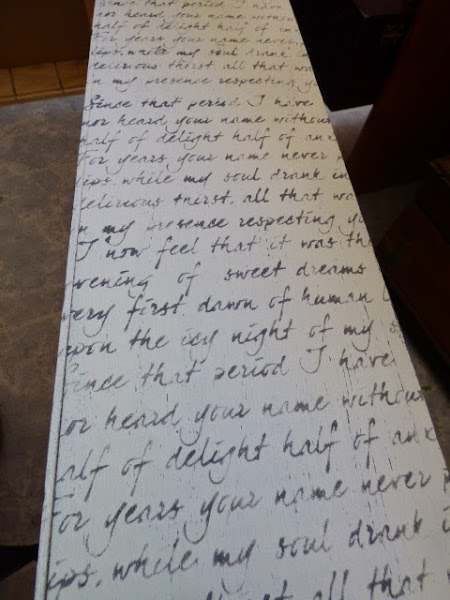 Since that period I have
nor heard your name withou
half of delight half of an
For years your name never
ips, while my soul drank in
delirious thirst, all that wa
n my presence respecting y
Since that period I have
nor heard your name withou
half of delight half of anx
For years your name never
ips, while my soul drank in
delirious thirst, all that wa
n my presence respecting yo
I now feel that it was the
evening of sweet dreams
very first dawn of human
upon the icy night of my s
Since that period I have
or heard your name without
alf of delight half of anx
For years your name never
ips, while my soul drank i
all that w